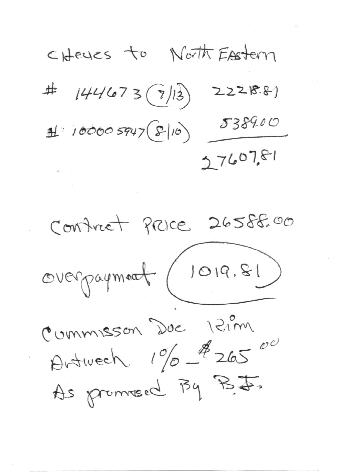 CHeues to North Eastern
# 144673 (7/13) 22218.81
# 100005947 (8/10) 5389.00
27607.81
Contract Price 26588.00
overpayment 1019.81
Commisson Due
1% - $265 00
As promised By B.J.